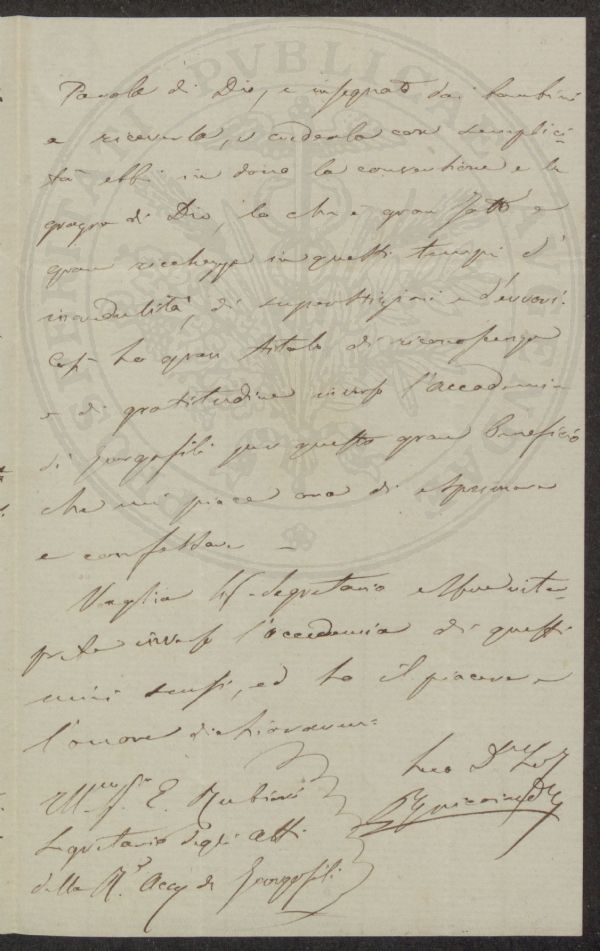 Parola di Dio, e insegnato dai bambini
a riceverla, e crederla con semplici=
tà ebbi in dono la conversione e la
grazia di Dio, lo che è gran fatto e
gran ricchezza in questi tempi d'
incredulità, di superstizioni e d'errori.
Così ho gran titolo di riconoscenza
e di gratitudine inverso l'accademia
di Georgofili per questo gran beneficio
che mi piace ora di esprimere
e confessare. —
Voglia il Segretario essere inter=
prete inverso l'accademia di questi
miei sensi, ed ho il piacere e
l'onore di dichiararmi=
Suo D.
Ill.mo Sr. E. Rubieri
Segretario degli atti
della R. Accad. di Georgofili